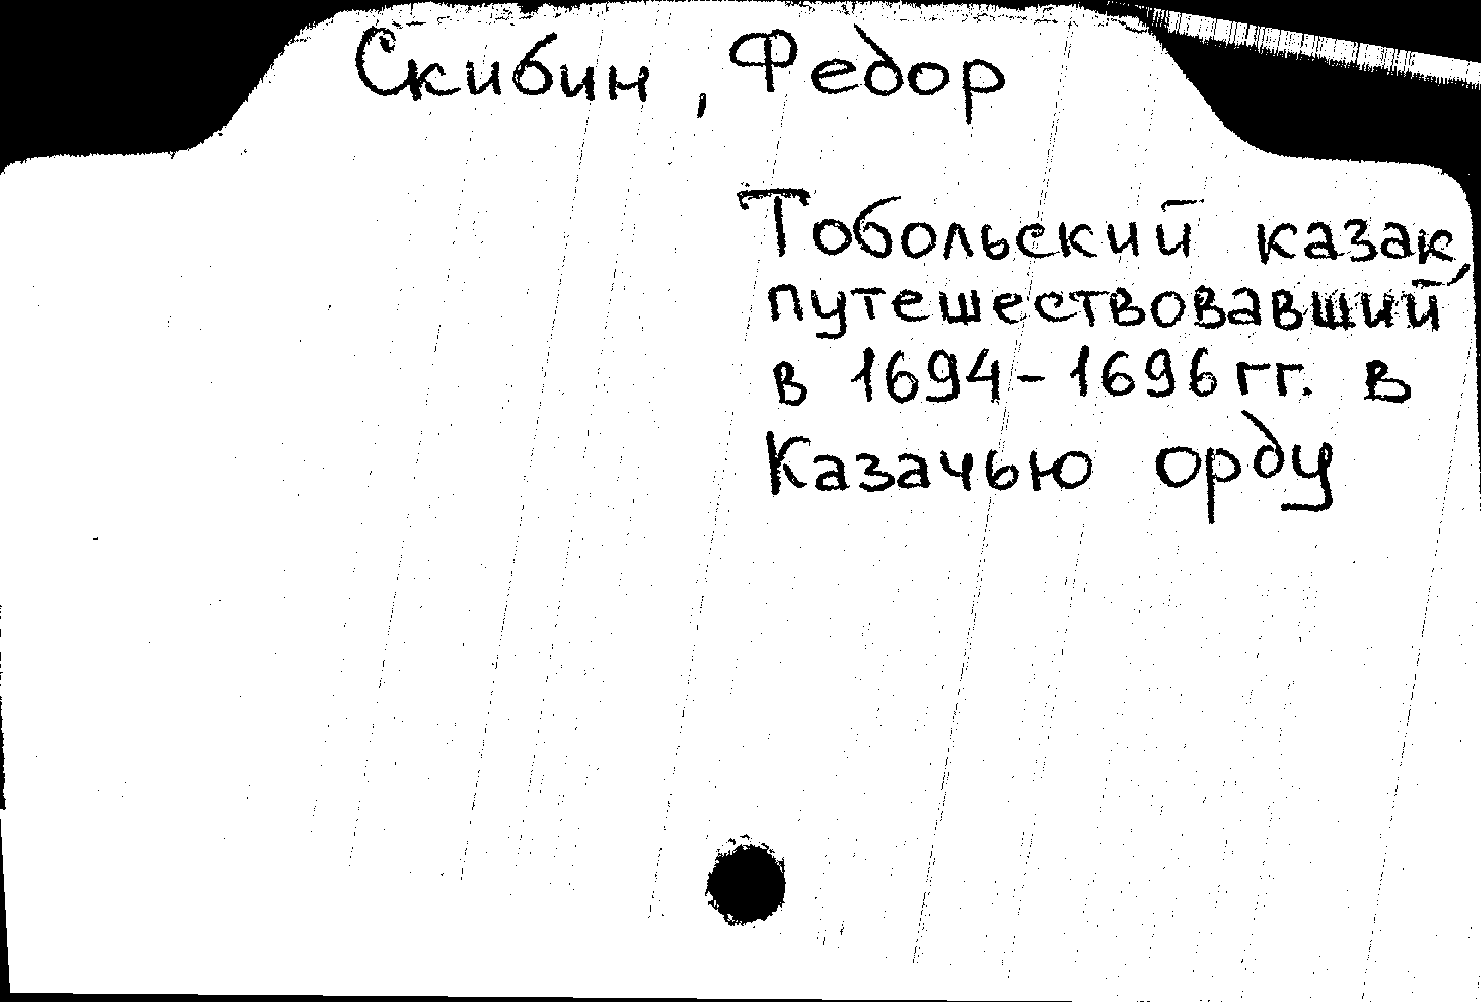 Скибин, Федор
Тобольский казак,
путешествовавший
в 1694-1696 гг. в
Казачью орду